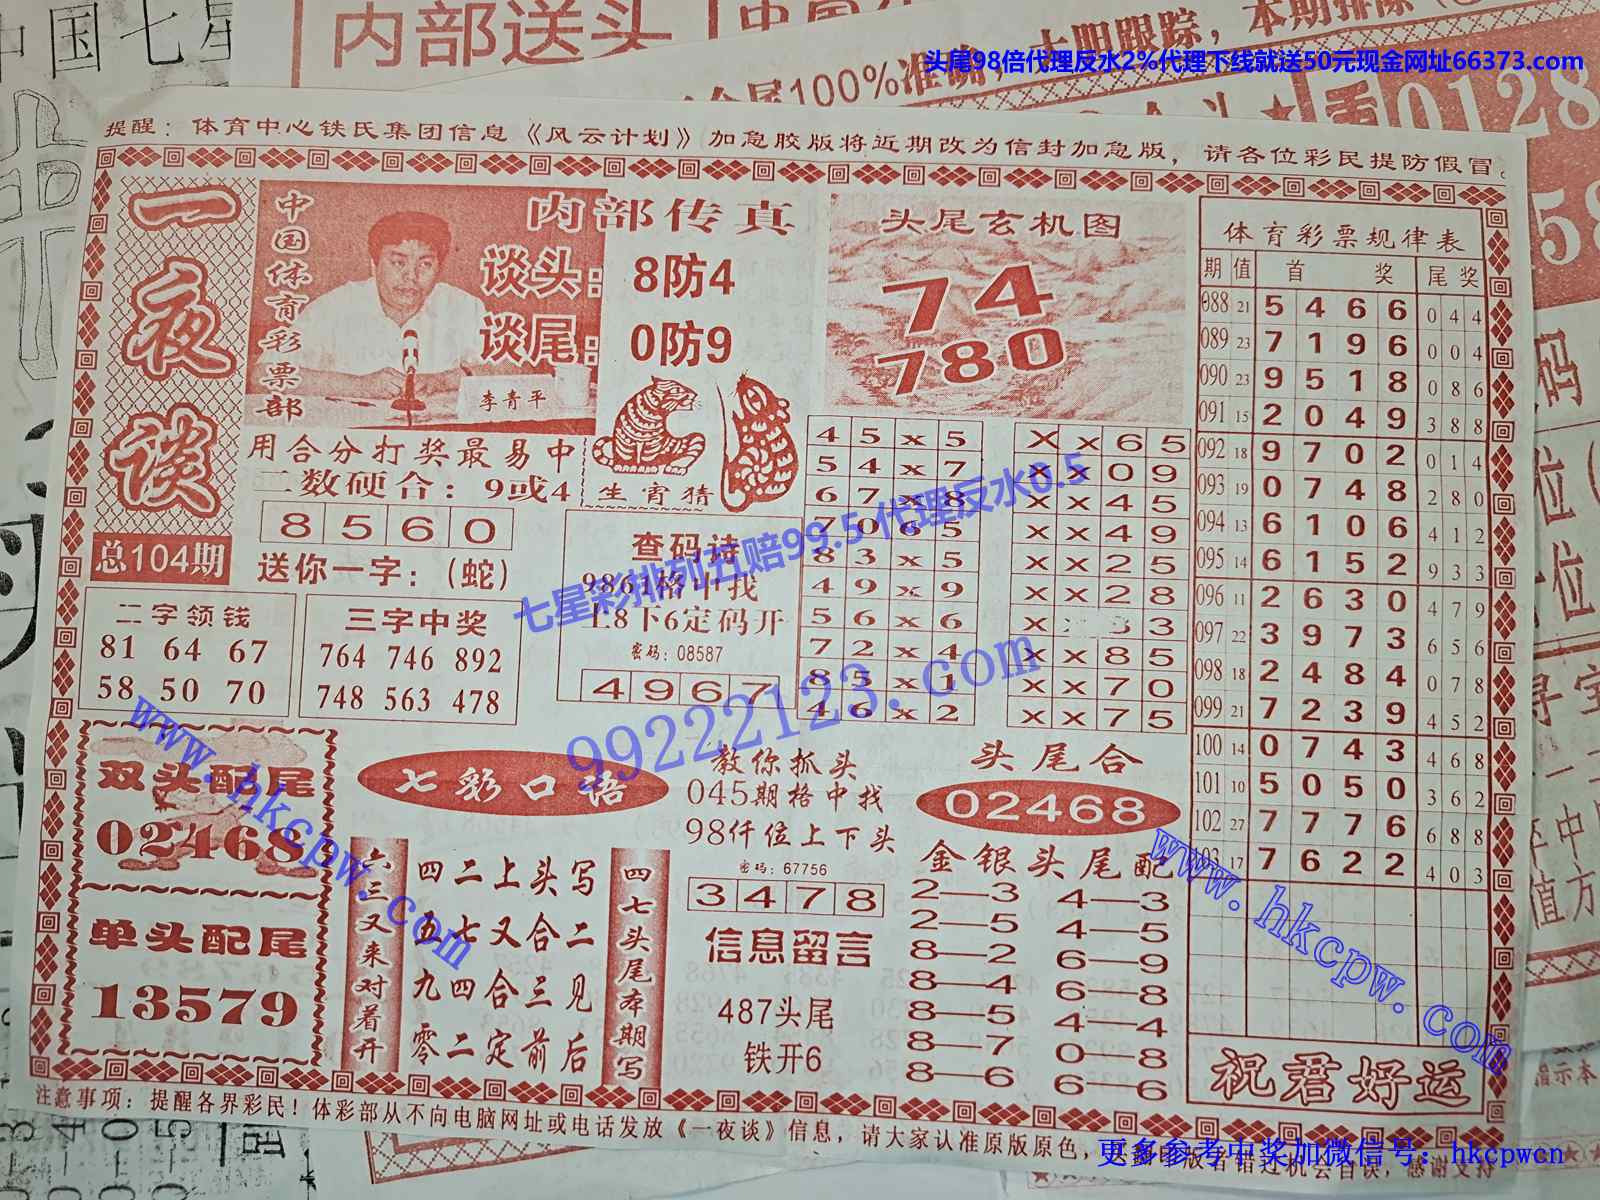 中国七星
内部送头
头尾98倍代理反水2%代理下线就送50元现金网址66373.com
0128
提醒：体育中心铁氏集团信息《风云计划》加急胶版将近期改为信封加急版，请各位彩民提防假冒。
一夜谈
总104期
中国体育彩票部
内部传真
谈头：8防4
谈尾：0防9
李青平
用合分打奖最易中
二数硬合：9或4
8560
送你一字：（蛇）
生宵猜
二字领钱
81 64 67
58 50 70
三字中奖
764 746 892
748 563 478
查码诗
9861格中找
上8下6定码开
密码：08587
4967
头尾玄机图
74
780
45x5
54x7
67x8
7065
83x5
49x9
56x6
72x4
85x1
46x2
xx65
xx09
xx45
xx49
xx25
xx28
xx85
xx70
xx75
体育彩票规律表
期 值 首 奖 尾 奖
088 21 5466 044
089 23 7196 004
090 23 9518 086
091 15 2049 388
092 18 9702 014
093 19 0748 280
094 13 6106 412
095 14 6152 933
096 11 2630 479
097 22 3973 656
098 18 2484 078
099 21 7239 452
100 14 0743 468
101 10 5050 362
102 27 7776 688
17 7622 403
祝君好运
双头配尾
02468
单头配尾
13579
七彩口语
六三又来对着开
四二上头写
五七又合二
九四合三见
零二定前后
四七头尾本期写
教你抓头
045期格中找
98仟位上下头
密码：67756
3478
信息留言
487头尾
铁开6
头尾合
02468
金银头尾配
2—3 4—3
2—5 4—5
8—2 6—9
8—4 6—8
8—5 4—4
8—7 0—8
8—6 6—6
注意事项：提醒各界彩民！体彩部从不向电脑网址或电话发放《一夜谈》信息，请大家认准原版原色，
七星彩排列五赔99.5代理反水0.5
99222123.com
www.hkcpw.com
www.hkcpw.com
更多参考中奖加微信号：hkcpwcn